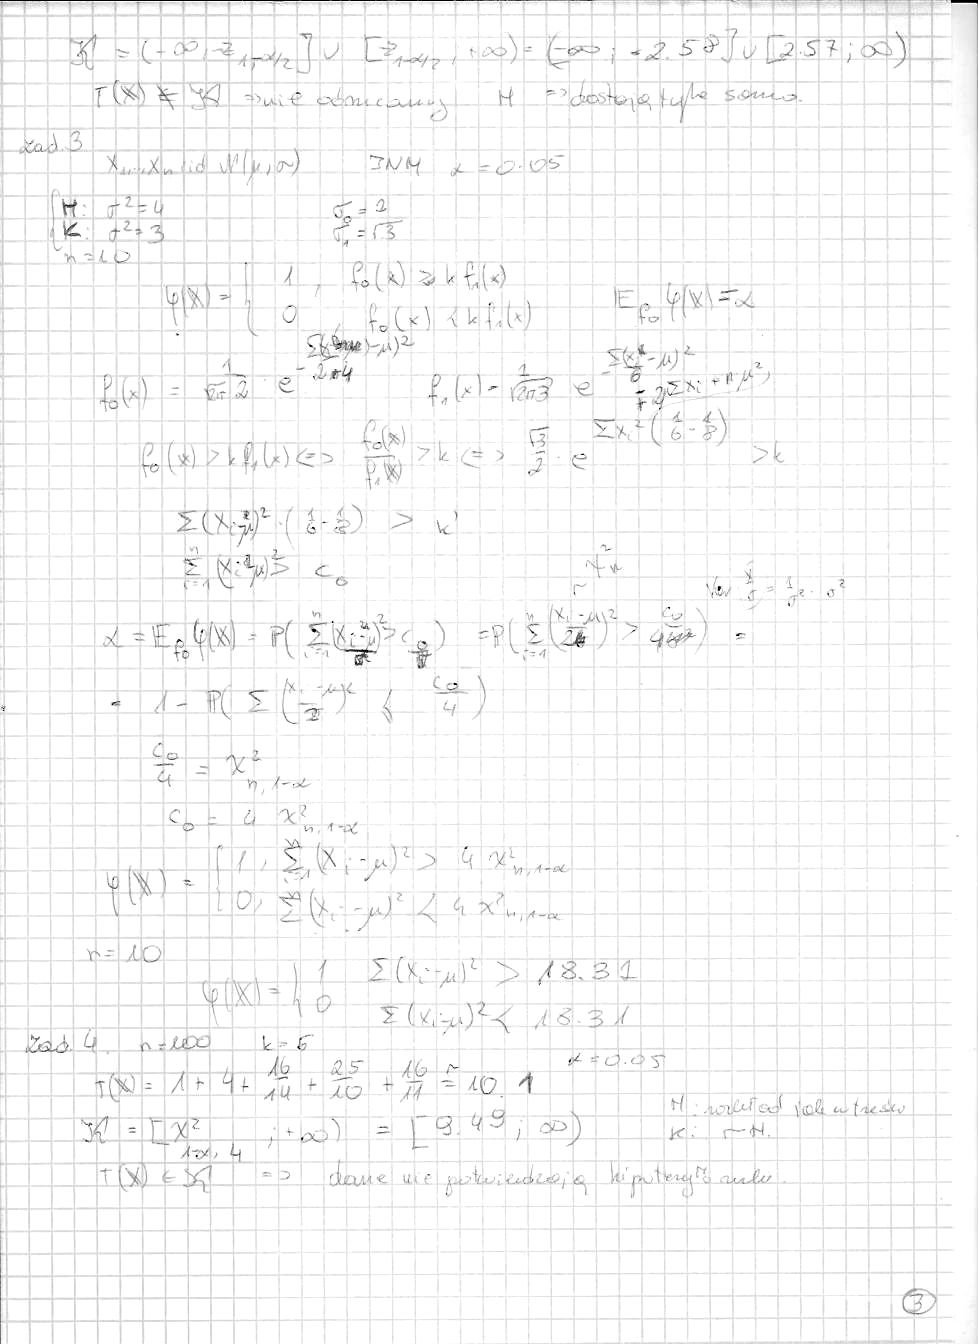 K = (-∞; -z_{1-α/2}] ∪ [z_{1-α/2}; +∞) = (-∞; -2.58] ∪ [2.57; ∞)
T(X) ∉ K => nie odrzucamy H => dostają tyle samo.
Zad. 3
X₁,...,Xₙ iid N(μ, σ) JNM α = 0.05
H: σ² = 4 σ₀ = 2
K: σ² = 3 σ₁ = √3
n = 10
φ(X) = { 1, f₀(x) ≥ k f₁(x)
0 f₀(x) < k f₁(x) E_{f₀} φ(X) = α
f₀(x) = 1/(√2π 2) · e^{-Σ(x_i-μ)²/2·4} f₁(x) = 1/√2π3 e^{-Σ(x_i-μ)²/6}
f₀(x) > k f₁(x) <=> f₀(x)/f₁(x) > k <=> √3/2 · e^{Σx_i² (1/6 - 1/8)} > k
Σ(x_i-μ)² · (1/6 - 1/8) > k'
Σ_{i=1}^{n} (x_i-μ)² > c₀
χ²ₙ
Var X/σ = 1/σ² · σ²
α = E_{f₀} φ(X) = P(Σ_{i=1}^{n} (X_i-μ)² > c₀) = P(Σ_{i=1}^{n} ((X_i-μ)/2)² > c₀/4) =
= 1 - P(Σ((X_i-μ)/2)² < c₀/4)
c₀/4 = χ²_{n,1-α}
c₀ = 4 χ²_{n,1-α}
φ(X) = { 1, Σ_{i=1}^{n} (X_i-μ)² > 4 χ²_{n,1-α}
0, Σ_{i=1}^{n} (X_i-μ)² < 4 χ²_{n,1-α}
n = 10
φ(X) = { 1 Σ(X_i-μ)² > 18.31
0 Σ(X_i-μ)² < 18.31
Zad. 4. n=100 k=5 α = 0.05
T(X) = 1 + 4 + 16/14 + 25/10 + 16/11 = 10.1
H: rozkład jak w treści
K: ¬H.
K = [χ²_{1-α, 4}; +∞) = [9.49; ∞)
T(X) ∈ K => dane nie potwierdzają hipotezy
3